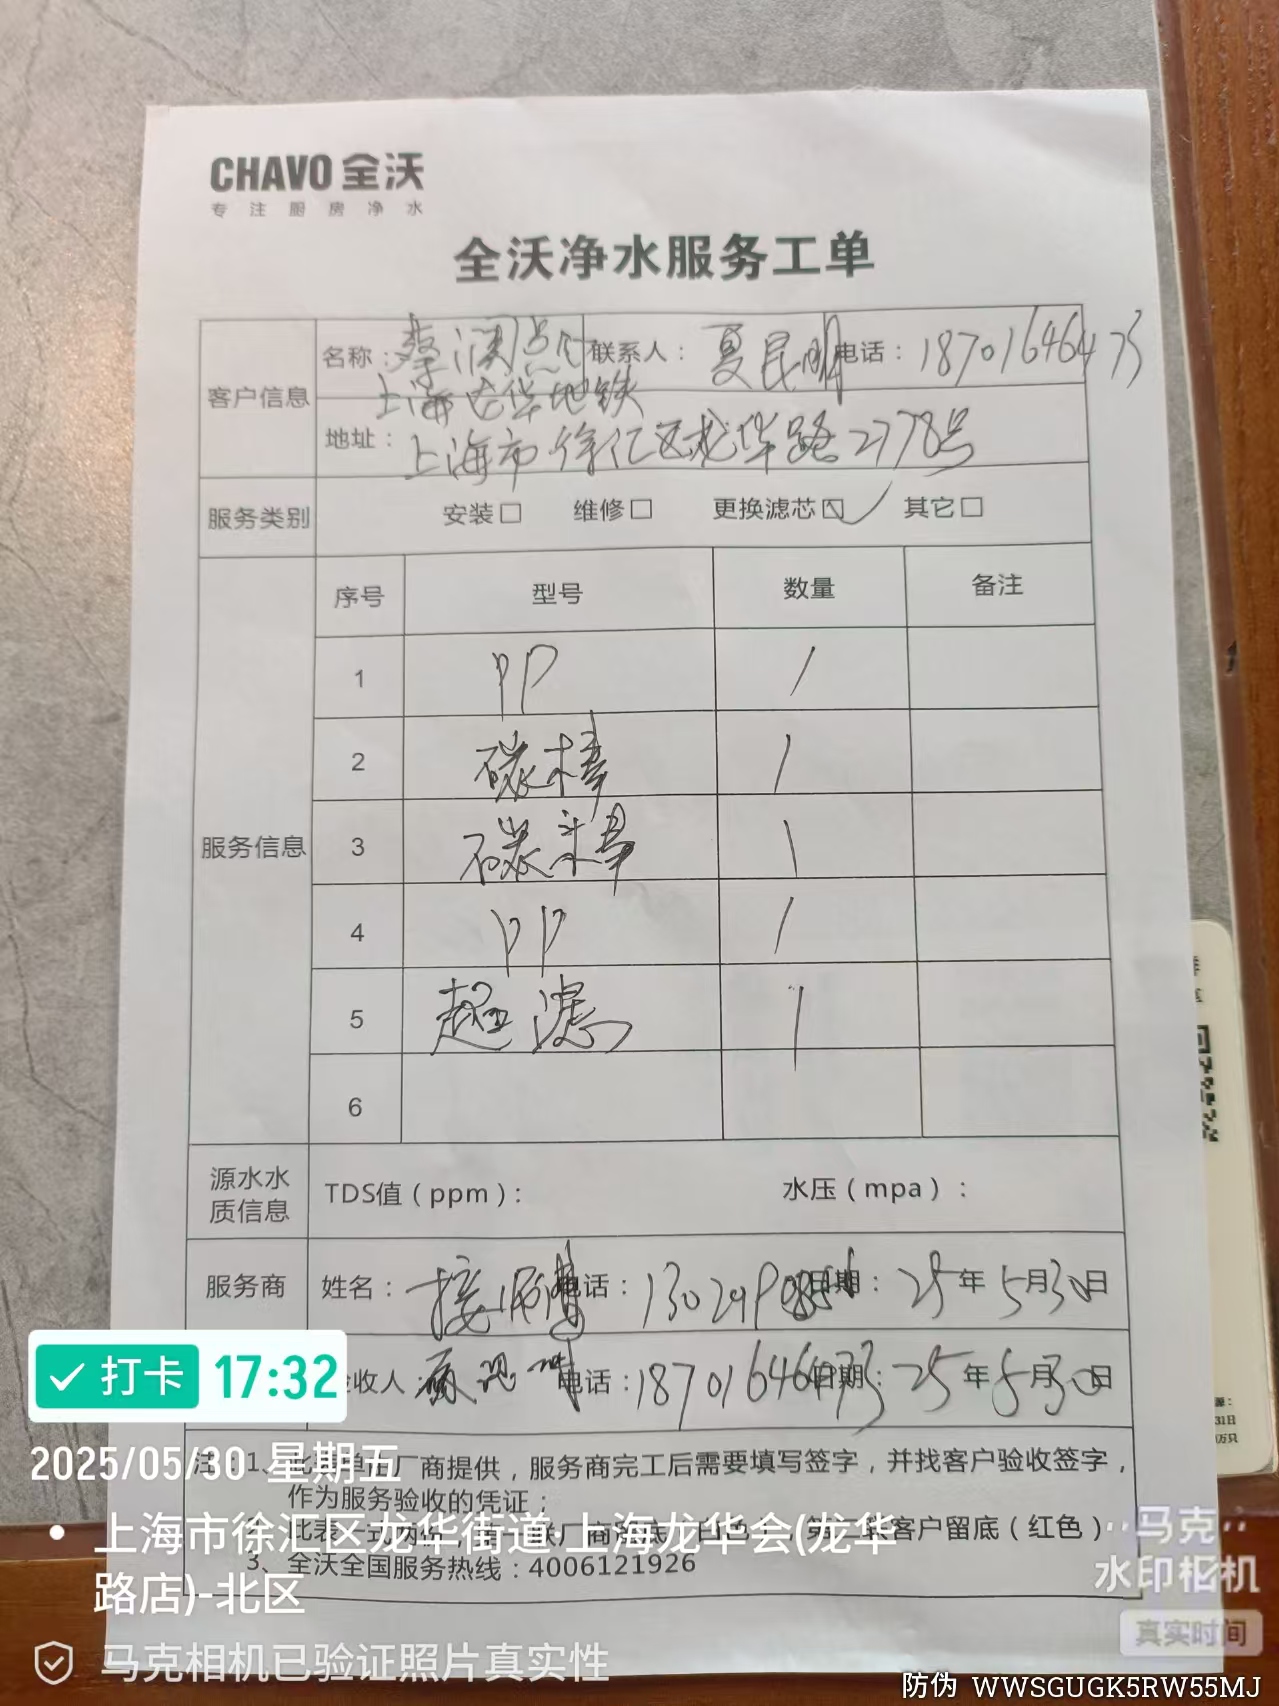 CHAVO 全沃
专注厨房净水
全沃净水服务工单
客户信息
名称：蔡澜点心 联系人：夏昆明 电话：18701646473
上海龙华地铁
地址：上海市徐汇区龙华路2778号
服务类别 安装□ 维修□ 更换滤芯☑ 其它□
服务信息
序号 型号 数量 备注
1 PP 1
2 碳棒 1
3 碳棒 1
4 PP 1
5 超滤 1
6
源水水质信息 TDS值（ppm）： 水压（mpa）：
服务商 姓名： 电话： 日期：25年5月30日
收人 电话：18701646473 日期：25年5月30日
注：1、 厂商提供，服务商完工后需要填写签字，并找客户验收签字，
作为服务验收的凭证；
此表一式两份， 客户留底（红色）
3、全沃全国服务热线：4006121926
打卡 17:32
2025/05/30 星期五
上海市徐汇区龙华街道·上海龙华会(龙华
路店)-北区
马克相机已验证照片真实性
马克
水印相机
真实时间
防伪 WWSGUGK5RW55MJ